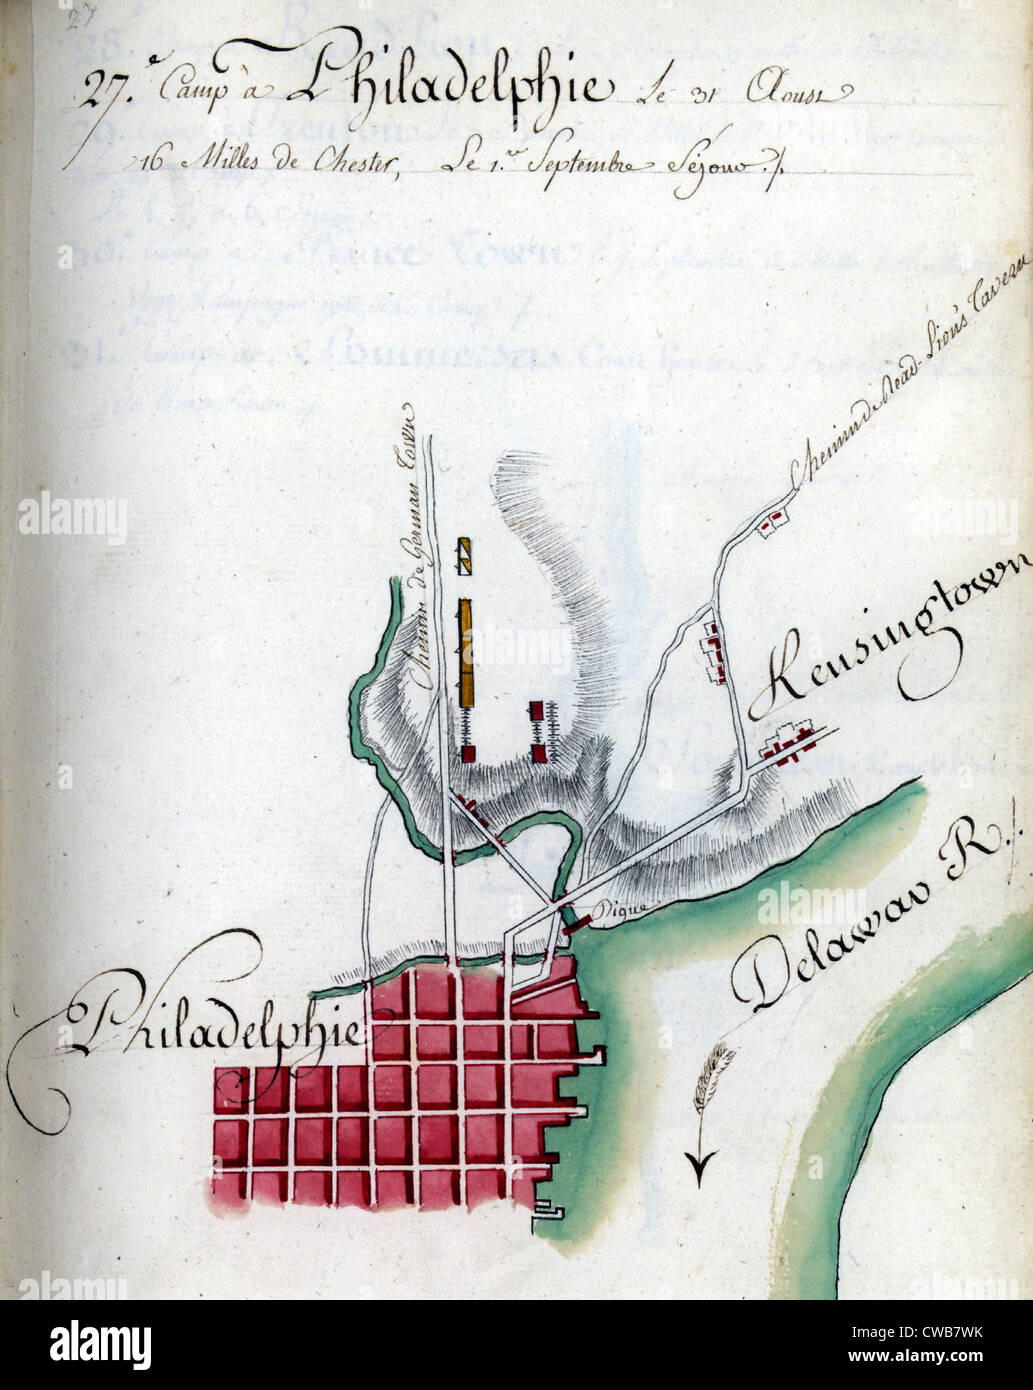 27
27.e Camp à Philadelphie Le 31 Aoust
16 Milles de Chester, Le 1.er Septembre Séjour ./.
Chemin de Read-Lion's Tavern
Chemin de German Town
Kensingtown
Delawar R./.
Digue
Philadelphie
alamy
Image ID: CWB7WK
www.alamy.com